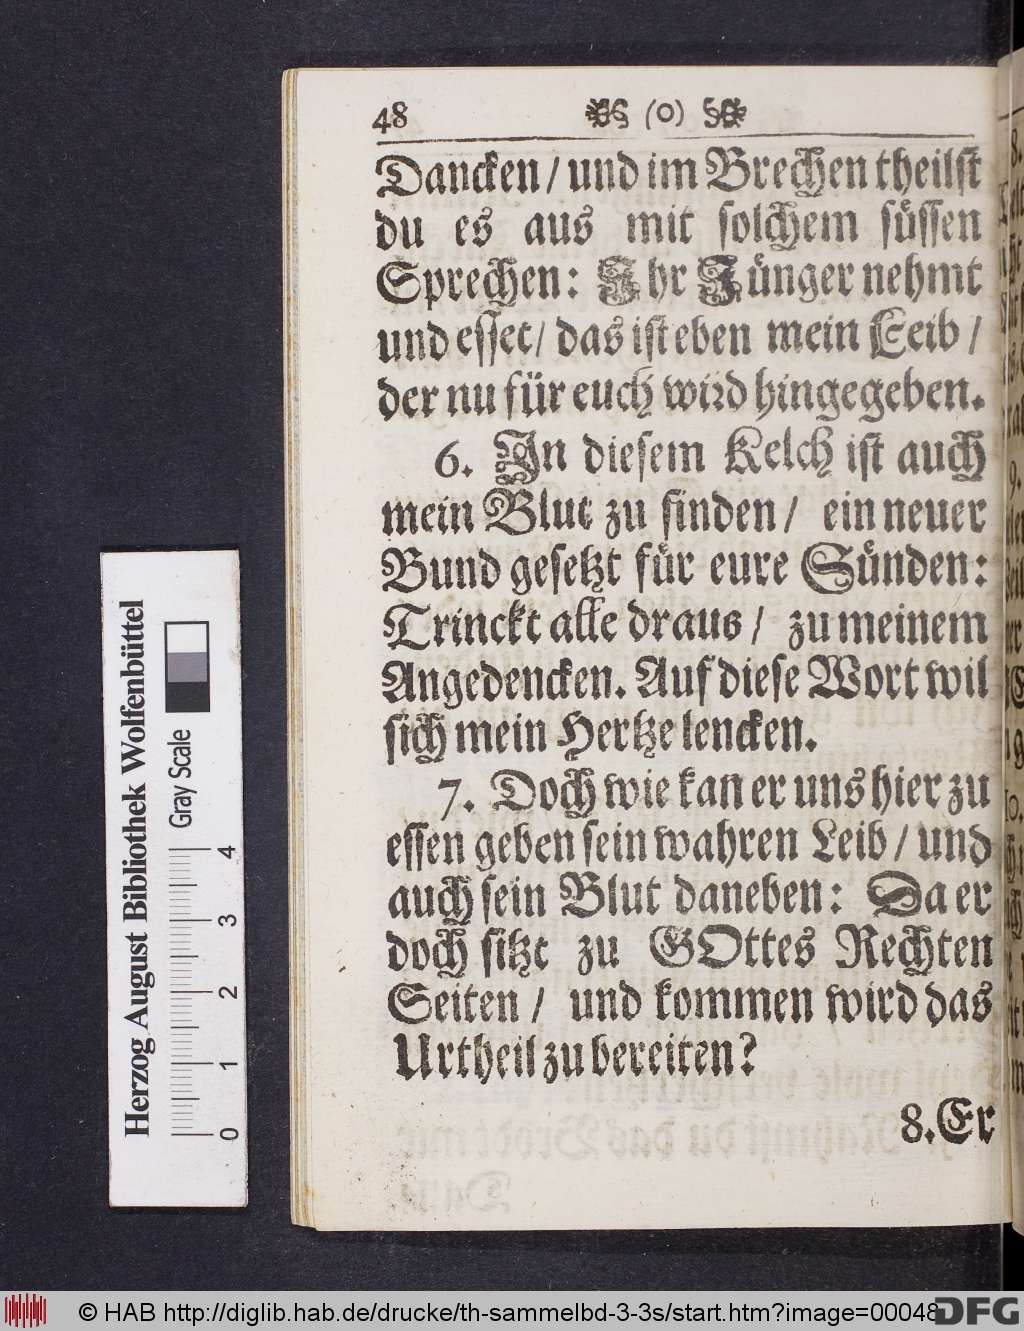 48 (o)
Dancken / und im Brechen theilst
du es aus mit solchem süssen
Sprechen: Ihr Jünger nehmt
und esset / das ist eben mein Leib /
der nu für euch wird hingegeben.
6. In diesem Kelch ist auch
mein Blut zu finden / ein neuer
Bund gesetzt für eure Sünden:
Trinckt alle draus / zu meinem
Angedencken. Auf diese Wort wil
sich mein Hertze lencken.
7. Doch wie kan er uns hier zu
essen geben sein wahren Leib / und
auch sein Blut daneben: Da er
doch sitzt zu GOttes Rechten
Seiten / und kommen wird das
Urtheil zu bereiten?
8. Er
Herzog August Bibliothek Wolfenbüttel
Gray Scale
0 1 2 3 4
© HAB http://diglib.hab.de/drucke/th-sammelbd-3-3s/start.htm?image=00048
DFG